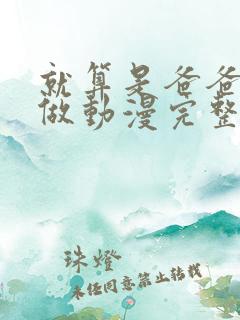 就算是爸爸
做動漫完整
珠燈
未經同意禁止轉載